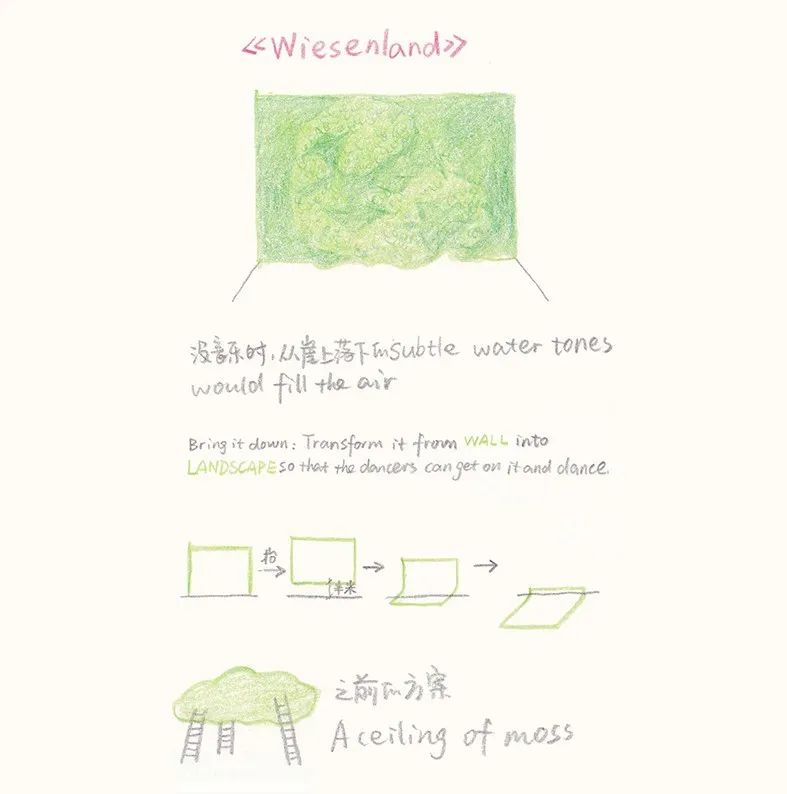 《Wiesenland》
没音乐时，从崖上落下的subtle water tones
would fill the air
Bring it down: Transform it from WALL into
LANDSCAPE so that the dancers can get on it and dance.
抬
半米
之前的方案
A ceiling of moss